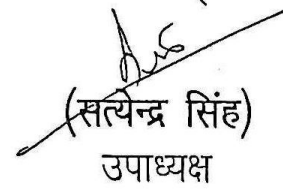 (सत्येन्द्र सिंह)
उपाध्यक्ष